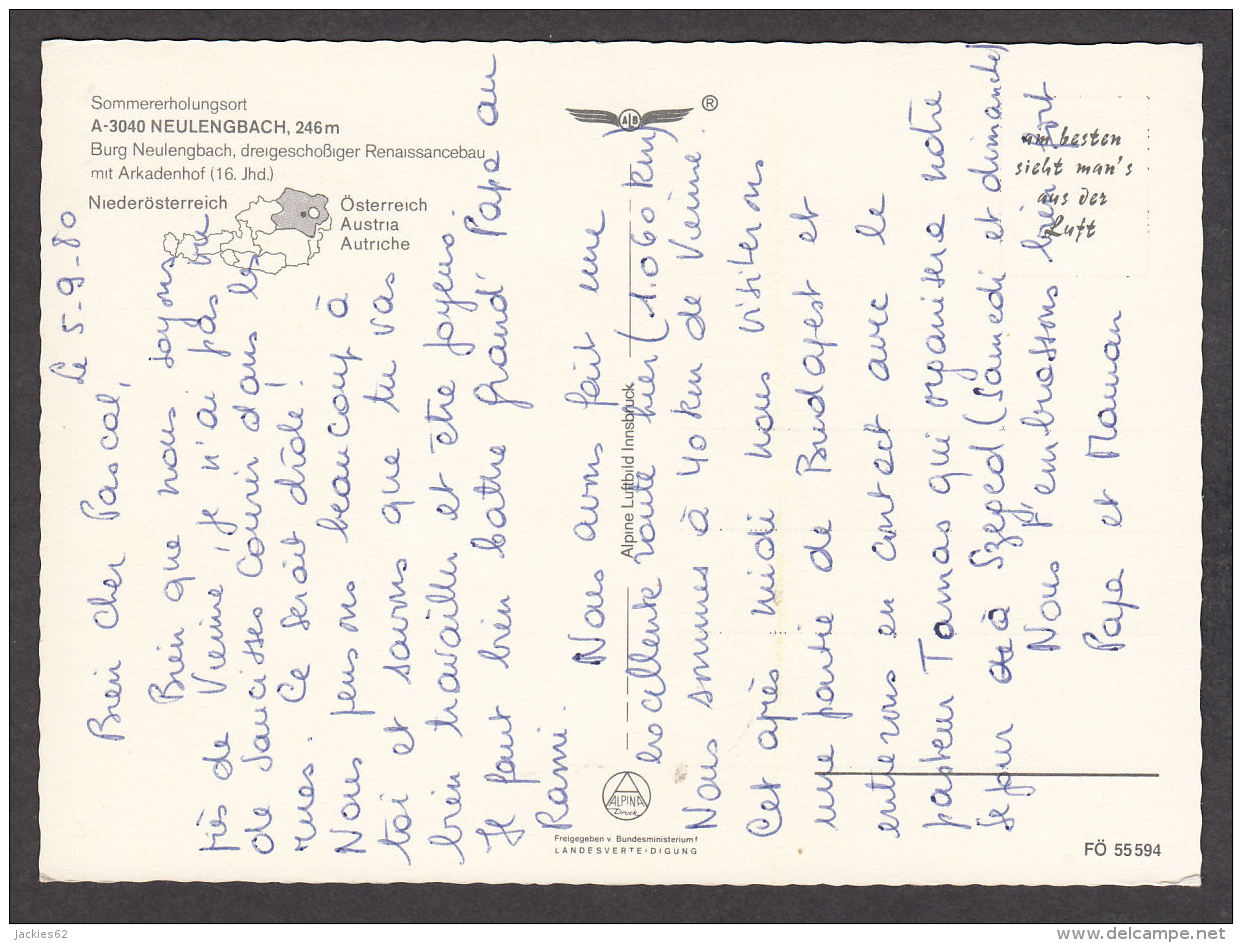 Sommererholungsort
A-3040 NEULENGBACH, 246 m
Burg Neulengbach, dreigeschoßiger Renaissancebau
mit Arkadenhof (16. Jhd.)
Niederösterreich
Österreich
Austria
Autriche
AIB
®
am besten
sieht man's
aus der
Luft
Le 5-9-80
Bien cher Pascal,
Bien que nous soyons
près de Vienne, je n'ai pas vu
de saucisses courir dans les
rues. Ce serait drôle!
Nous pensons beaucoup à
toi et savons que tu vas
bien travailler et être joyeux
Il faut bien battre grand' Papa au
Rami.
Nous avons fait une
excellente route hier (1.060 km)
Nous sommes à 40 km de Vienne
Cet après midi nous visiterons
une partie de Budapest et
entrerons en contact avec le
pasteur Tamas qui organisera notre
séjour à Szeged (samedi et dimanche)
Nous t'embrassons bien fort
Papa et Maman
Alpine Luftbild Innsbruck
ALPINA
Druck
Freigegeben v Bundesministerium f
LANDESVERTEIDIGUNG
FÖ 55 594
jackies62
delcampe.net